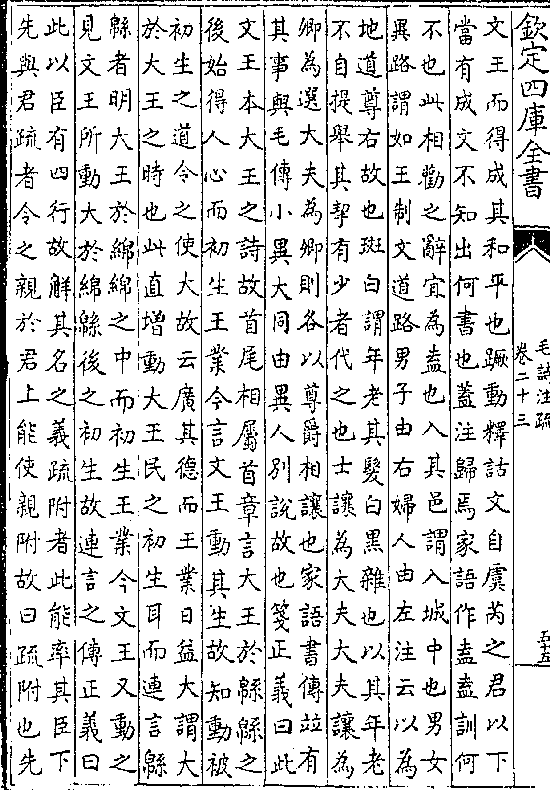 欽定四庫全書
毛詩注疏
卷二十三
五十五
文王而得成其和平也蹶動釋詁文自虞芮之君以下
當有成文不知出何書也蓋注歸焉家語作盍盍訓何
不也此相勸之辭宜為盍也入其邑謂入城中也男女
異路謂如王制文道路男子由右婦人由左注云以為
地道尊右故也斑白謂年老其髮白黑雜也以其年老
不自提舉其挈有少者代之也士讓為大夫大夫讓為
卿為選大夫為卿則各以尊爵相讓也家語書傳竝有
其事與毛傳小異大同由異人別說故也箋正義曰此
文王本大王之詩故首尾相屬首章言大王於緜緜之
後始得人心而初生王業今言文王動其生故知動被
初生之道令之使大故云廣其德而王業日益大謂大
於大王之時也此直增動大王民之初生耳而連言緜
緜者明大王於綿綿之中而初生王業今文王又動之
見文王所動大於綿緜後之初生故連言之傳正義曰
此以臣有四行故解其名之義疏附者此能率其臣下
先與君疏者令之親於君上能使親附故曰疏附也先